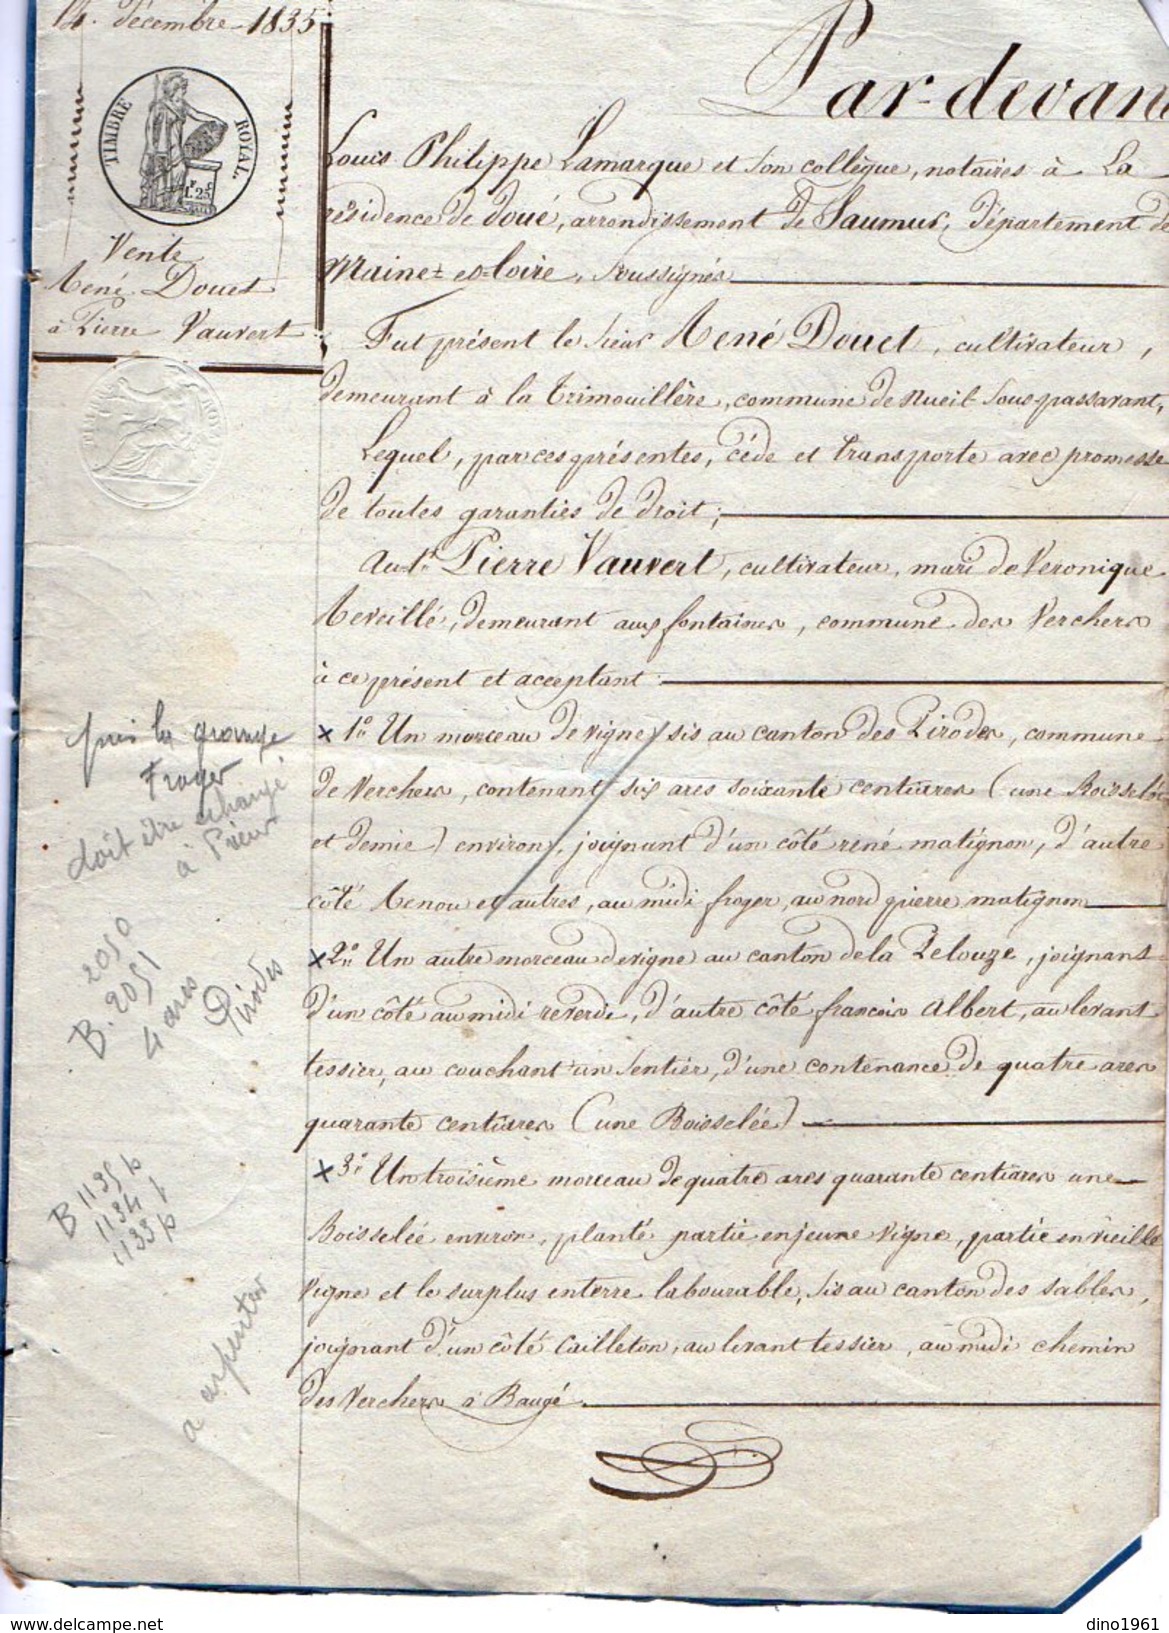 14. décembre 1835
TIMBRE ROYAL.
1.F 25c
Vente
René Douet
à Pierre Vauvert
Par-devant
Louis Philippe Lamarque et son collègue, notaires à la
résidence de Doué, arrondissement de Saumur, Département de
Maine-et-Loire, soussignés
Fut présent le sieur René Douet, cultivateur,
demeurant à la Trimouillère, commune de Nueil-sous-passavant,
Lequel, par ces présentes, cède et transporte avec promesse
de toutes garanties de droit;
Au sr Pierre Vauvert, cultivateur, mari de Veronique
Reveillé, demeurant aux fontaines, commune des Verchers
à ce présent et acceptant:
x 1° Un morceau de vigne sis au canton des Pirodes, commune
de Verchers, contenant six ares soixante centiares (une Boisselée
et demie) environ, joignant d'un côté rené matignon, d'autre
côté Renou et autres, au midi froger, au nord pierre matignon
x 2° Un autre morceau de vigne au canton de la Pelouze, joignant
d'un côté au midi reverdi, d'autre côté françois Albert, au levant
tessier, au couchant un sentier, d'une contenance de quatre ares
quarante centiares (une Boisselée)
x 3° Un troisième morceau de quatre ares quarante centiares une
Boisselée environ, planté partie en jeune vigne, partie en vieille
vigne et le surplus en terre labourable, sis au canton des sables,
joignant d'un côté Cailleton, au levant tessier, au midi chemin
des Verchers à Baugé.
puis la grange
Froger
doit être échangé
à Prieur
2050
B. 2051
4 ares
Pirodes
B 1135 p
1134 p
1133 p
a arpenter
dino1961